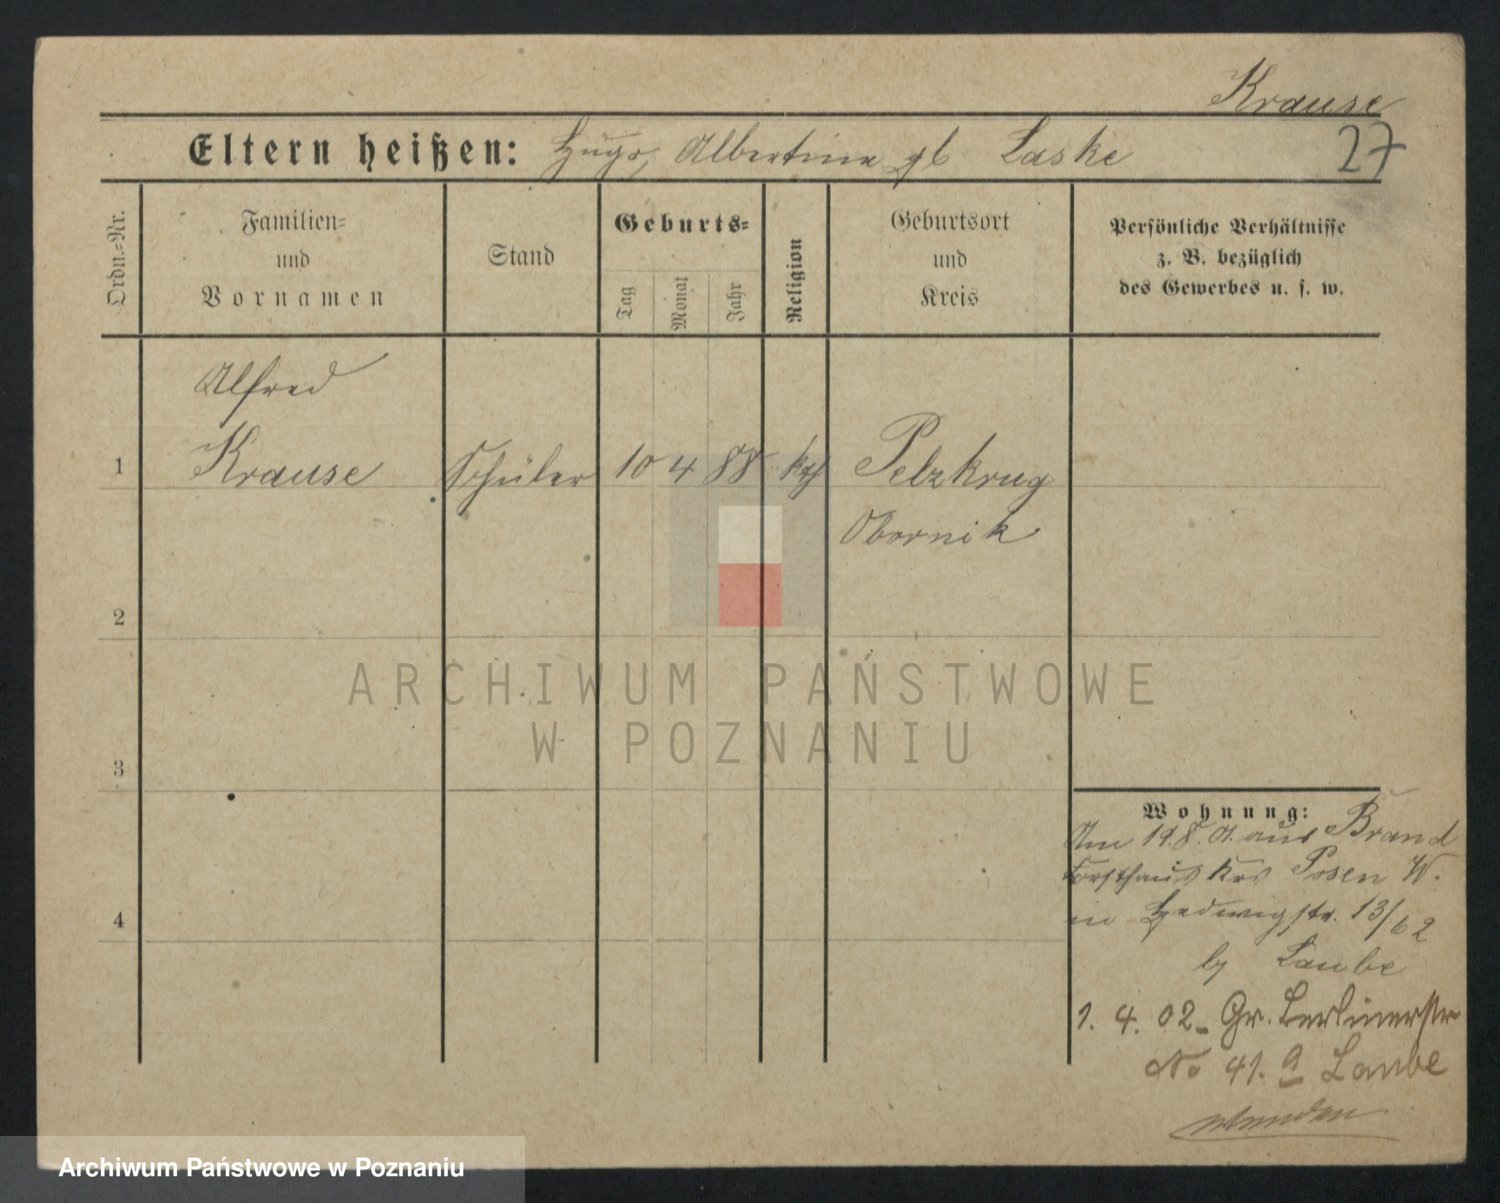 Krause
27
Eltern heißen: Hugo, Albertine gb Laske
Ordn.=Nr.
Familien=
und
Vornamen
Stand
Geburts=
Tag
Monat
Jahr
Religion
Geburtsort
und
Kreis
Persönliche Verhältnisse
z. B. bezüglich
des Gewerbes u. s. w.
Alfred
1 Krause Schüler 10 4 88 kth Pelzkrug
Obornik
2
ARCHIWUM PAŃSTWOWE
W POZNANIU
3
4
Wohnung:
Am 19.8.01. aus Brand
Forsthaus Krs Posen W.
in Hedwigstr. 13/62
by Laube
1. 4. 02 - Gr. Berlinerstr
No 41. a Laube
wenden
Archiwum Państwowe w Poznaniu